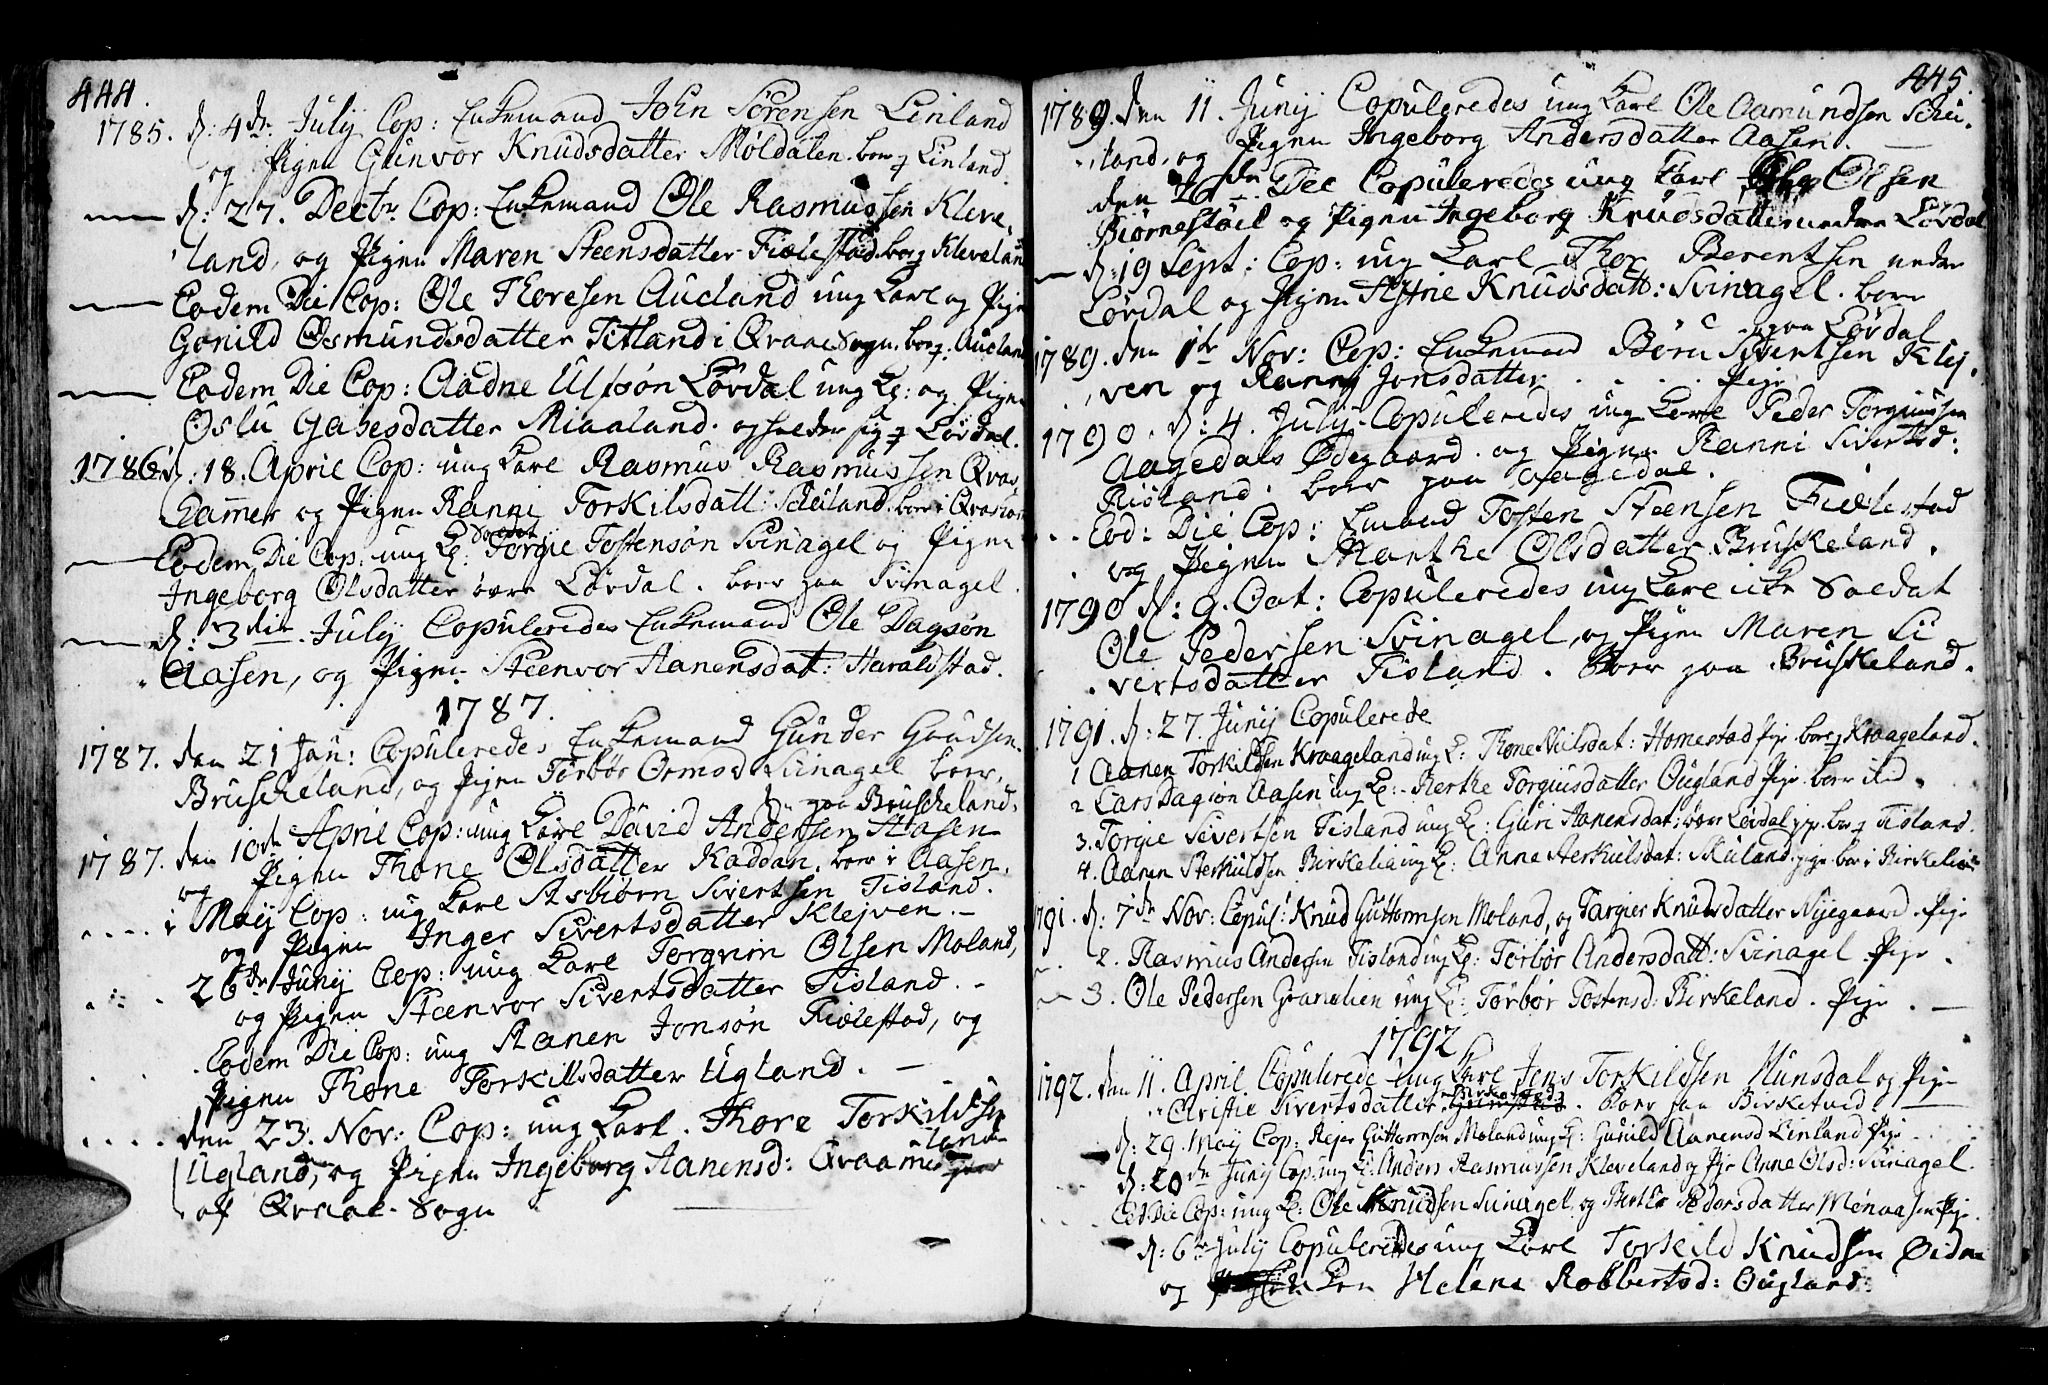 444.
1785. d: 4de July Cop: Enkemand John Sörensen Linland
og Pigen Gunvor Knudsdatter Möldalen. boer p Linland.
d: 27. Decbr Cop: Enkemand Ole Rasmussen Kleve-
land, og Pigen Maren Steensdatter Fiælestad. boer p Kleveland
Eodem Die Cop: Ole Thoresen Aucland ung Karl og Pigen
Gonild Osmundsdatter Titland i Qvaae Sogn. boer p: Aucland
Eodem Die Cop: Aadne Ulfsön Lövdal ung K: og Pigen
Oslu Gabesdatter Miaaland. og
1786. d: 18. April Cop: ung Karl Rasmus Rasmussen Qvar-
hamer og Pigen Ranni Torkilsdatt: Scheiland. boer i
Eodem Die Cop: ung K: Soldat Torgie Tostensön Svinagel og Pigen
Ingeborg Olsdatter övre Lövdal. boer paa Svinagel.
d: 3die July Copuleredes Enkemand Ole Dagsön
Aasen, og Pigen Steenvor Aanensdat: Haraldstad.
1787.
1787. den 21 Jan: Copuleredes Enkemand Gunder Gaudsen
Bruscheland, og Pigen Torbör Ormsd: Svinagel boer
paa Bruscheland.
1787. den 10de April Cop: ung Karl David Andersen Aasen
og Pigen Thone Olsdatter Kaddan. boer i Aasen.
i May Cop: ung Karl Asbiörn Sivertsen Tisland.
og Pigen Inger Sivertsdatter Klejven.
26de Junij Cop: ung Karl Torgrim Olsen Moland,
og Pigen Steenvor Sivertsdatter Tisland.
Eodem Die Cop: ung Aanen Jonsön Fiælestad, og
Pigen Thone Torkillsdatter Ugland.
den 23. Nov: Cop: ung Karl. Thore Torkildsen
Ugland, og Pigen Ingeborg Aanensd:
af Qvaae Sogn
445.
1789. den 11. Junij Copuleredes ung Karl Ole Aamundsen Schei-
land. og Pigen Ingeborg Andersdatter Aasen.
den 26de Die Copuleredes ung Karl Olsen
Biörnestöil og Pigen Ingeborg Knudsdatter nedre Lövdal
d: 19 Sept: Cop: ung Karl Thor Berentsen nedre
Lövdal og Pigen Astrie Knudsdatt: Svinagel. boer
paa Lövdal
1789. den 1te Nov: Cop: Enkemand Böru Sivertsen Klej-
ven og Ranni Jonsdatter . . . . Pige
1790. d: 4. July Copuleredes ung Karl Peder Torgiussen
Aagedals Ödegaard. og Pigen Ranni Sivertsd:
Risland. boer paa Aagedal.
Eod: Die Cop: Emand Tosten Steensen Fiælestad
og Pigen Marthe Olsdatter Bruskeland.
1790 d: 9. Oct: Copuleredes ung Karl icke Soldat
Ole Pedersen Svinagel, og Pigen Maren Si
vertsdatter Tisland. Boer paa Bruskeland.
1791. d: 27. Junij Copulerede
1 Aanen Torkildsen Kraageland ung K: Thone Nilsdat: Homestad Pige boer p Kraageland.
2 Lars Dagsön Aasen ung K: Berthe Torgiusdatter Ougland Pige boer
3. Torgie Sivertsen Tisland ung K: Guri Aanensdat: övre Lövdal pige. boer p Tisland.
4. Aanen Sterkuldsen Birkelia ung K: Anne Sterkulsdat: Skuland pige boer i Birkelien
1791. d: 7de Nov: Copul: Knud Guttormsen Moland, og Targier Knudsdatter Nyegaard. Pige
2. Rasmus Andersen Tisland ung K: Torbör Andersdatt: Svinagel Pige.
3. Ole Pedersen Granelien ung K: Torbör Tostensd: Birkeland. Pige.
1792
1792. den 11. April Copulerede ung Karl Jens Torkildsen Hunsdal og Pige
Christie Sivertsdatter Boer paa Birketved.
d: 29. May Cop: Rejer Guttormsen Moland ung K: Gunild Aanensd Linland Pige
d: 20de Junij Cop: ung K: Anders Rasmussen Kleveland og Pige Anne Olsd: Svinagel.
Eod Die Cop: ung K: Ole Knudsen Svinagel, og Berthe Pedersdatter Monaasen Pige.
d: 6te July Copuleredes ung Karl Torkild Knudsen Eidn
og Helene Robbertsd: Ougland.